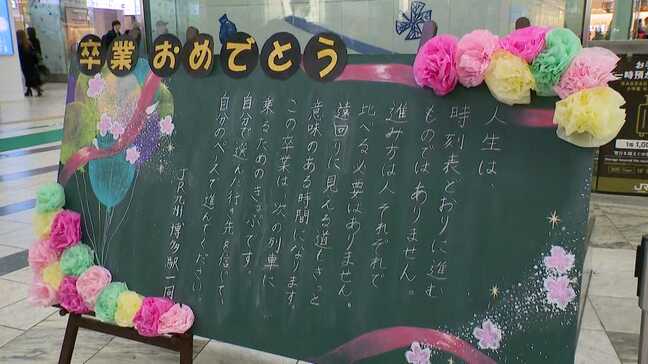 卒業おめでとう
人生は、
時刻表どおりに進む
ものではありません。
進み方は人それぞれで
比べる必要はありません。
遠回りに見える道もきっと
意味のある時間になります。
この卒業は、次の列車に
乗るためのきっぷです。
自分で選んだ行き先を信じて、
自分のペースで進んでください。
JR九州 博多駅一同
一時預か
JR